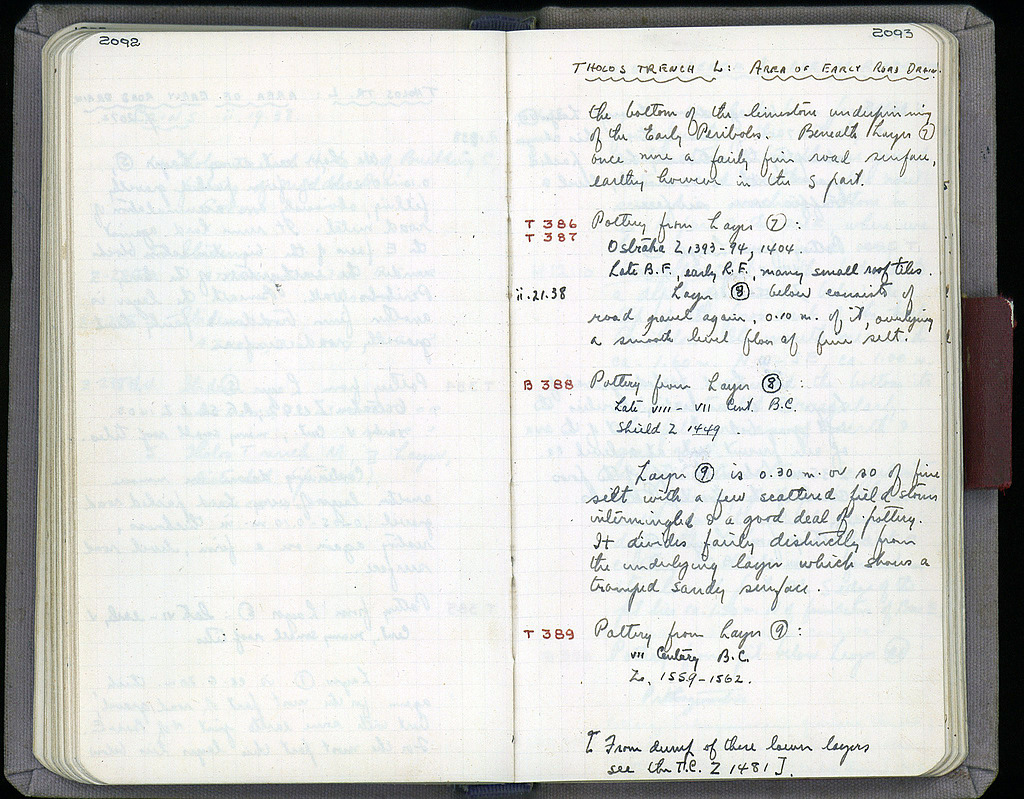 2092
2093
THOLOS TRENCH L: AREA OF EARLY ROAD DRAIN.
the bottom of the limestone underpinning
of the Early Peribolos. Beneath Layer ⑦
once more a fairly firm road surface,
earthy however in the S part.
T 386 Pottery from Layer ⑦:
T 387 Ostraka Z 1393-94, 1404.
Late B.F., early R.F., many small roof tiles.
ii.21.38 Layer ⑧ below consists of
road gravel again, 0.10 m. of it, overlying
a smooth level floor of fine silt.
B 388 Pottery from Layer ⑧:
Late VIII - VII Cent. B.C.
Shield Z 1449.
Layer ⑨ is 0.30 m. or so of fine
silt with a few scattered field stones
intermingled & a good deal of pottery.
It divides fairly distinctly from
the underlying layer which shows a
tramped sandy surface.
T 389 Pottery from Layer ⑨:
VII Century B.C.
Zs. 1559-1562.
[ From dump of these lower layers
see the T.C. Z 1481 ].